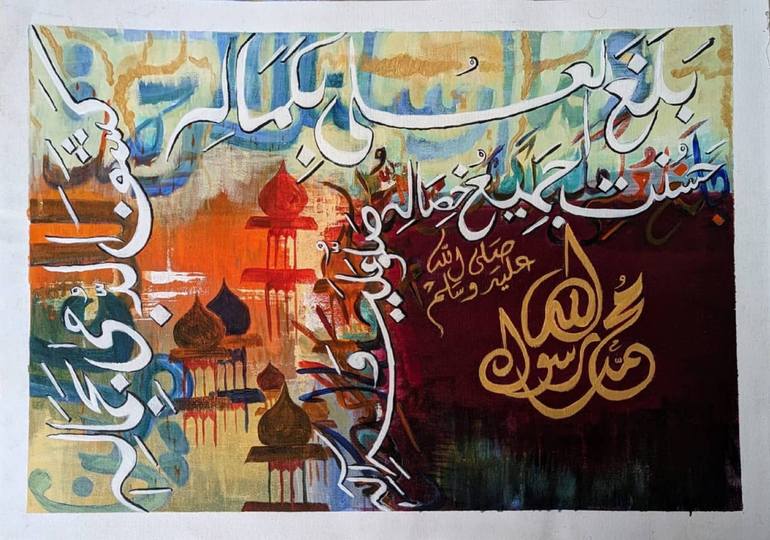 بَلَغَ العُلَى بِكَمَالِهِ
كَشَفَ الدُّجَى بِجَمَالِهِ
حَسُنَتْ جَمِيعُ خِصَالِهِ
صَلُّوا عَلَيْهِ وَآلِهِ
صَلَى الله
عليه وسلم
محمد رسول الله